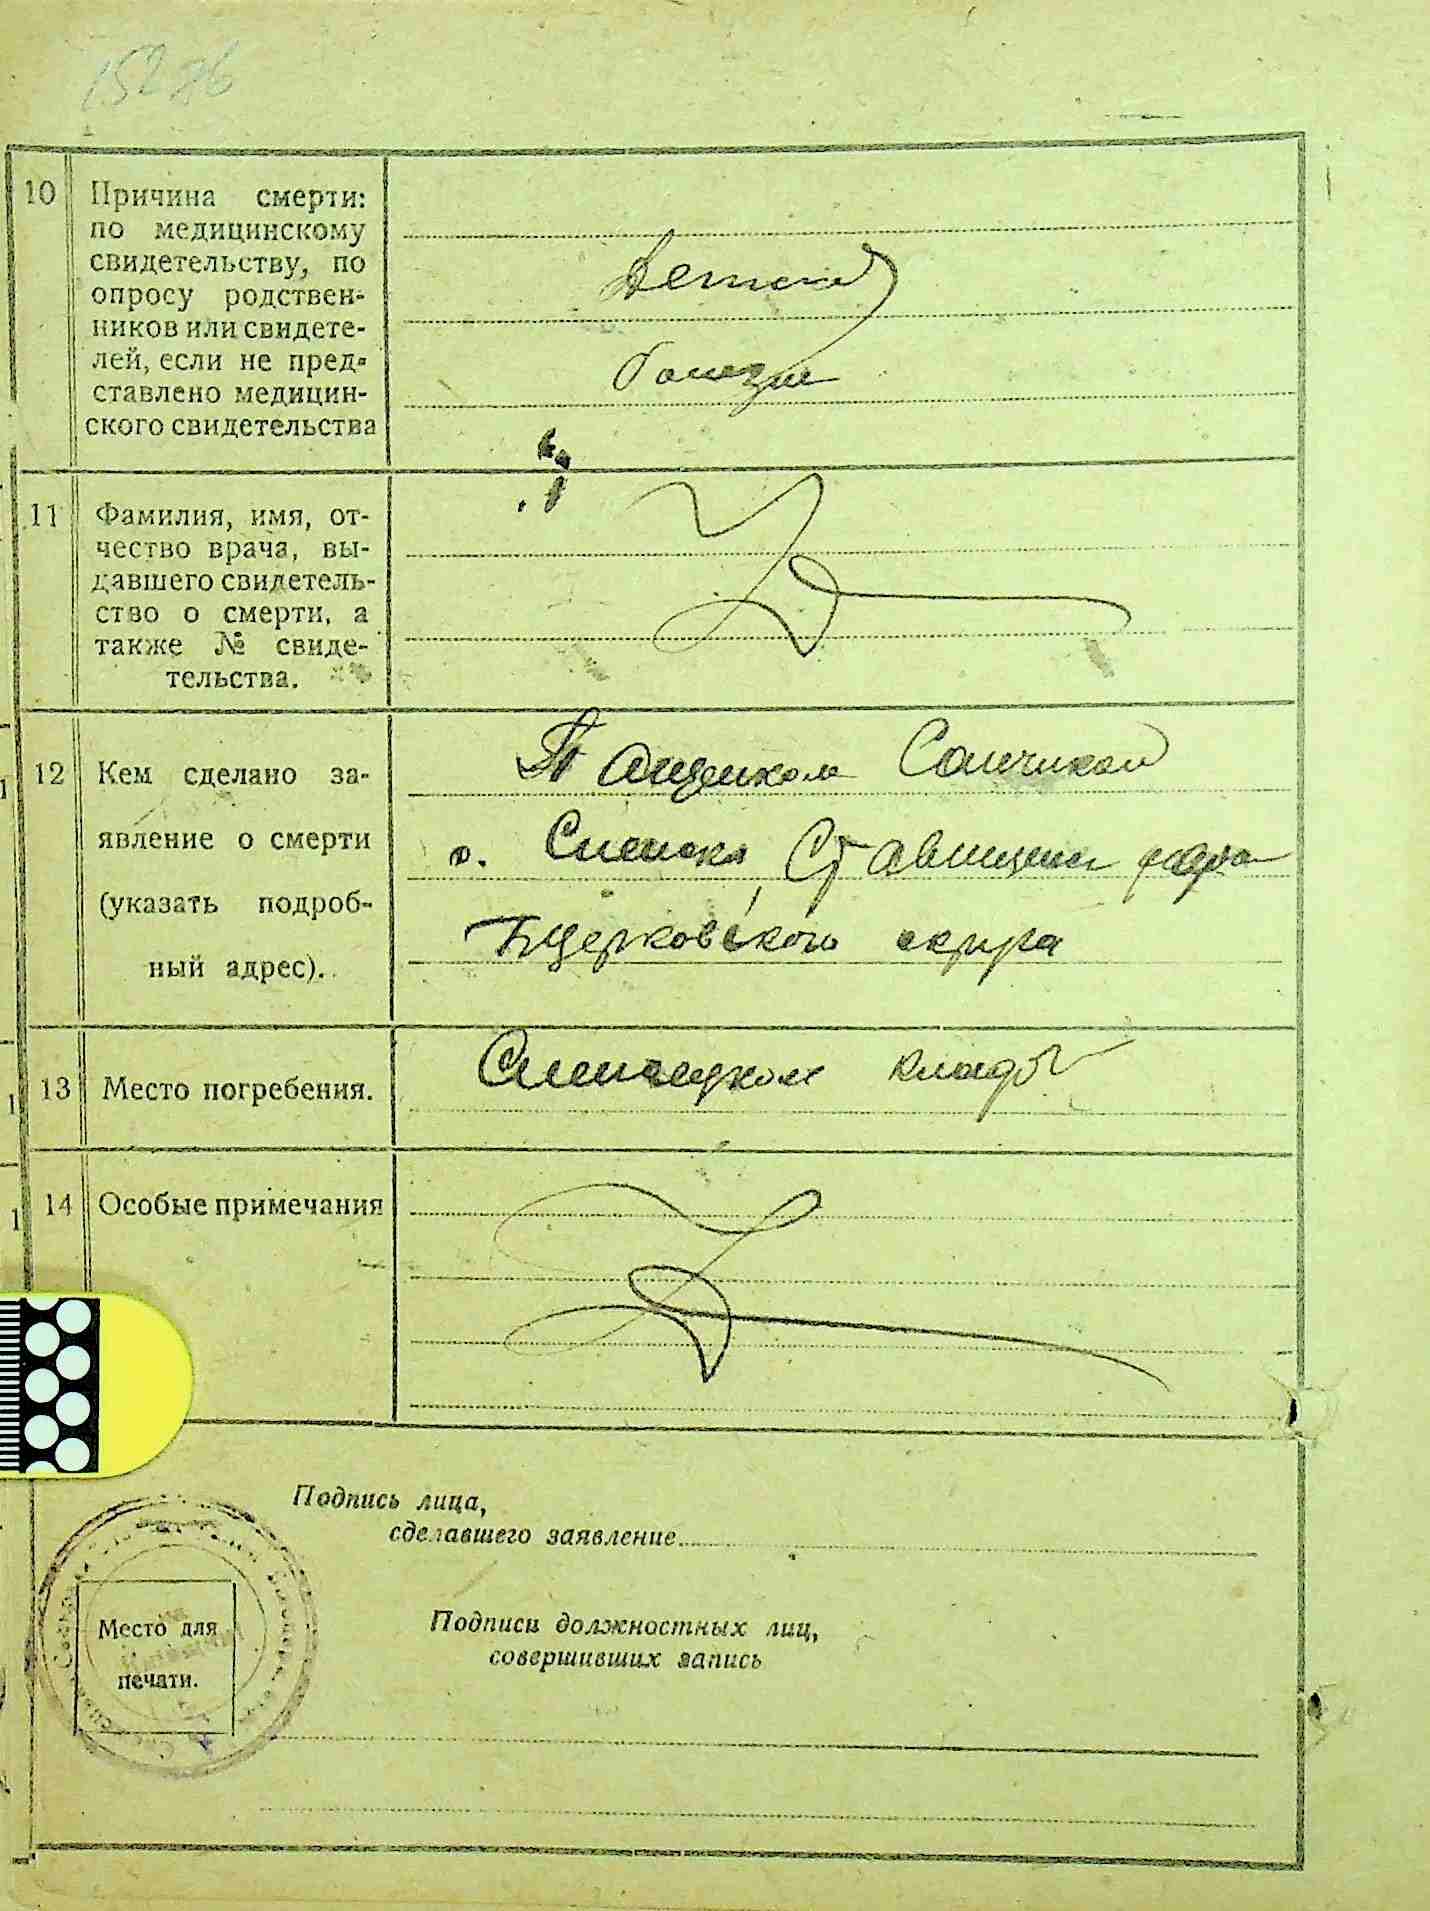 10 Причина смерти:
по медицинскому
свидетельству, по
опросу родствен-
ников или свидете-
лей, если не пред-
ставлено медицин-
ского свидетельства
Детская
болезнь
11 Фамилия, имя, от-
чество врача, вы-
давшего свидетель-
ство о смерти, а
также № свиде-
тельства.
12 Кем сделано за-
явление о смерти
(указать подроб-
ный адрес).
Ставищан района
Бцерковского округа
13 Место погребения.
кладб
14 Особые примечания
Подпись лица,
сделавшего заявление
Место для
печати.
Подписи должностных лиц,
совершивших запись